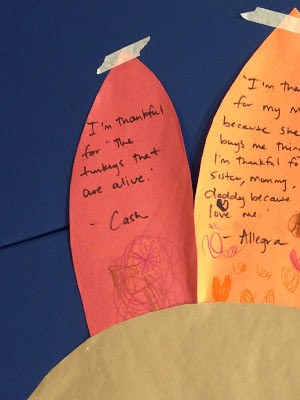 I'm thankful
for "The
turkeys that
are alive."
- Cash
"I'm tha
for my M
because she
buys me thin
I'm thankful fo
sister, mommy,
daddy because
love me."
- Allegra